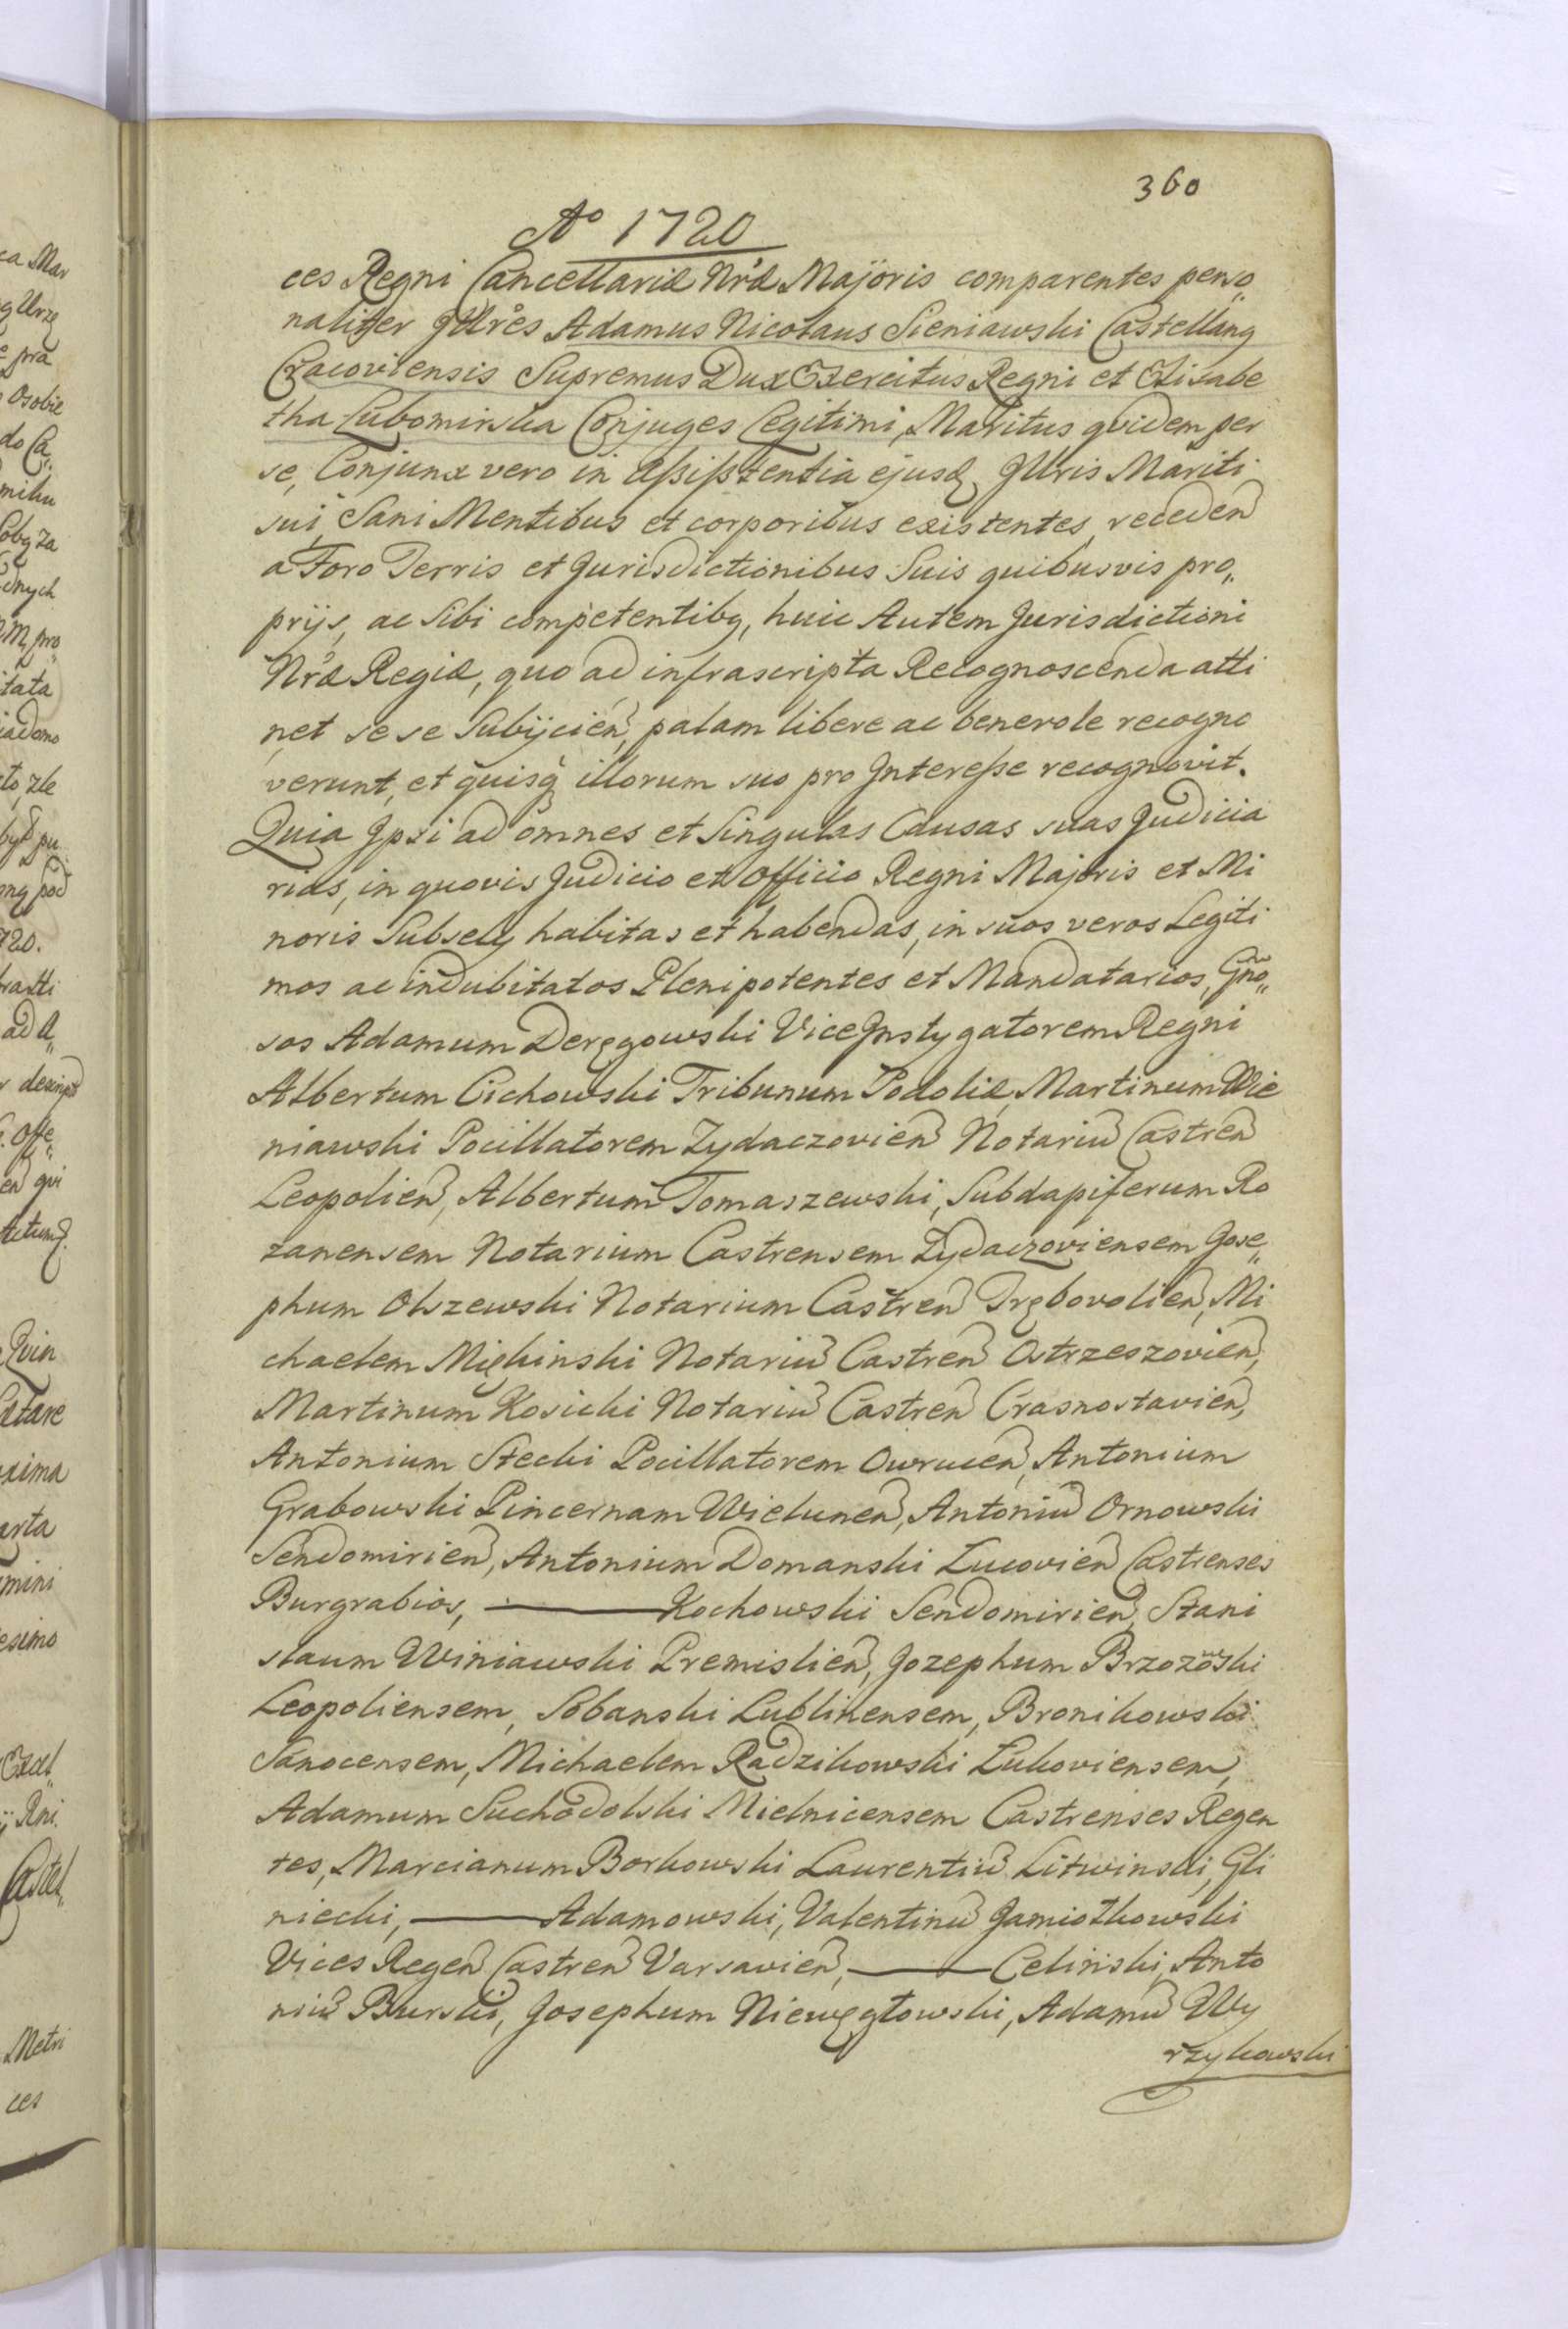 360
Aº 1720
ces Regni Cancellariæ Nræ Majoris comparentes perso„
naliter Illres Adamus Nicolaus Sieniawski Castellanꝯ
Cracoviensis Supremus Dux Exercitus Regni et Elisabe
tha Lubomirska Conjuges Legitimi, Maritus qvidem per
se, Conjunx vero in Aßißtentia ejusd. Illris Mariti
sui, Sani Mentibus et corporibus existentes, receden
a Foro Terris et Jurisdictionibus Suis quibusvis pro„
prijs, ac sibi competentibꝯ, huic Autem Jurisdictioni
Nræ Regiæ, quo ad infrascripta Recognoscenda atti
net se se Subijcien, palam libere ac benevole recogno
verunt, et quisq illorum suo pro Intereße recognovit.
Quia Ipsi ad omnes et Singulas Causas suas Judicia
rias, in quovis Judicio et Officio Regni Majoris et Mi
noris Subselÿ habitas et habendas, in suos veros Legiti
mos ac indubitatos Plenipotentes et Mandatarios, Gño„
sos Adamum Deręgowski ViceInstygatorem Regni
Albertum Cichowski Tribunum Podoliæ, Martinum Wie
niawski Pocillatorem Zydaczovien Notariu Castren
Leopolien, Albertum Tomaszewski, Subdapiferum Ro
zanensem Notarium Castrensem Zydaczoviensem Jose„
phum Olszewski Notarium Castren Trębovolien, Mi
chaelem Miękinski Notariu Castren Ostrzeszovien,
Martinum Kosicki Notariu Castren Crasnostavien,
Antonium Stecki Pocillatorem Owrucen, Antonium
Grabowski Pincernam Wielunen, Antoniu Ornowski
Sendomirien, Antonium Domanski Lucovien Castrenses
Burgrabios, ——— Kochowski Sendomirien, Stani
slaum Winiawski Premislien, Jozephum Brzozowski
Leopoliensem, Sobanski Lublinensem, Bronikowski
Sanocensem, Michaelem Radzikowski Lukoviensem,
Adamum Suchodolski Mielnicensem Castrenses Regen
tes, Marcianum Borkowski Laurentiu Litwinski, Gli
niecki, ——— Adamowski, Valentinu Jamiołkowski
Vices Regen Castren Varsavien, ——— Celiński, Anto
niu Burski, Josephum Niewęgłowski, Adamu Wy
rzykowski